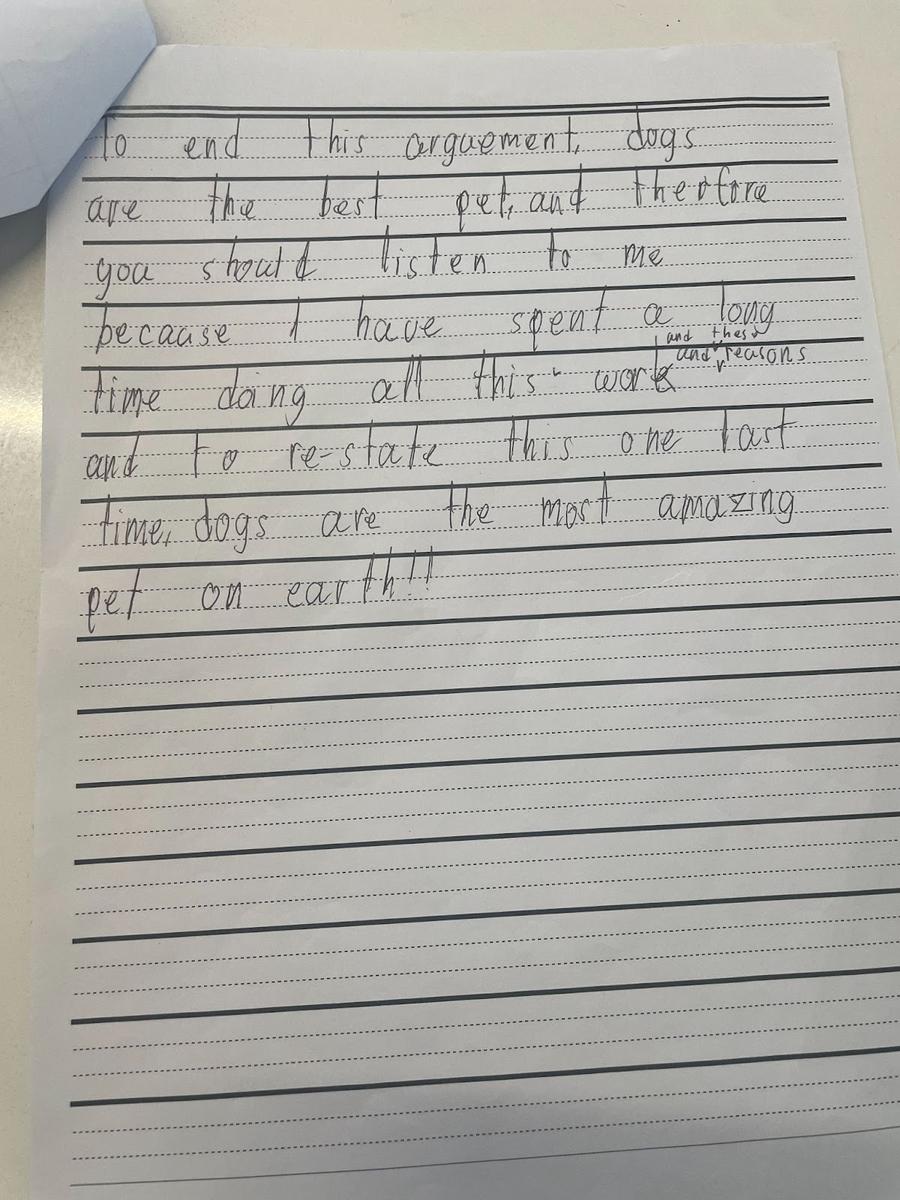 To end this arguement, dogs
are the best pet, and therfore
you should listen to me
because I have spent a long
and these
and reasons
time doing all this work
and to re-state this one last
time, dogs are the most amazing
pet on earth!!